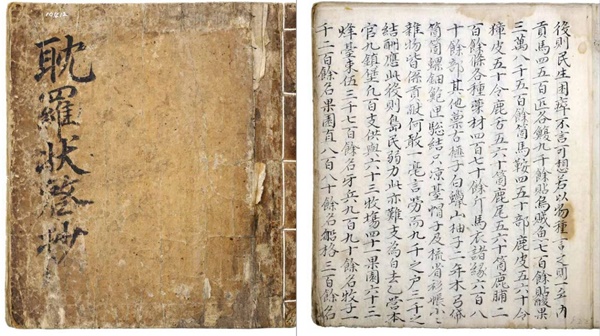 耽羅狀啓抄
後則民生困瘁不言可想若以物種言之則一年內
貢馬四五百匹各鰒九千餘貼烏賊魚七百餘貼果
三萬八千五百餘箇馬鞍四五十部鹿皮五六十令
獐皮五十令鹿舌五六十箇鹿尾五六十箇鹿脯二
百餘條各種藥材四百七十餘斤馬衣諸緣六百八
十餘部其他藁古榧子白蠟山柚子二年木弓
箇箇螺鈿鮑匣驄結只凉基帽子及梳省彩帳小小
雜物皆係貢獻何敢一毫言勞而九千之戶三千之
結酬應此後則島民弱力此亦難支為白去乙營本
官九鎭堡九百支供與六十三牧場四十一果園六十三
烽臺束伍三千七百餘名牙兵九百九十餘名牧子一
千二百餘名果園直八百八十餘名船格三百餘名